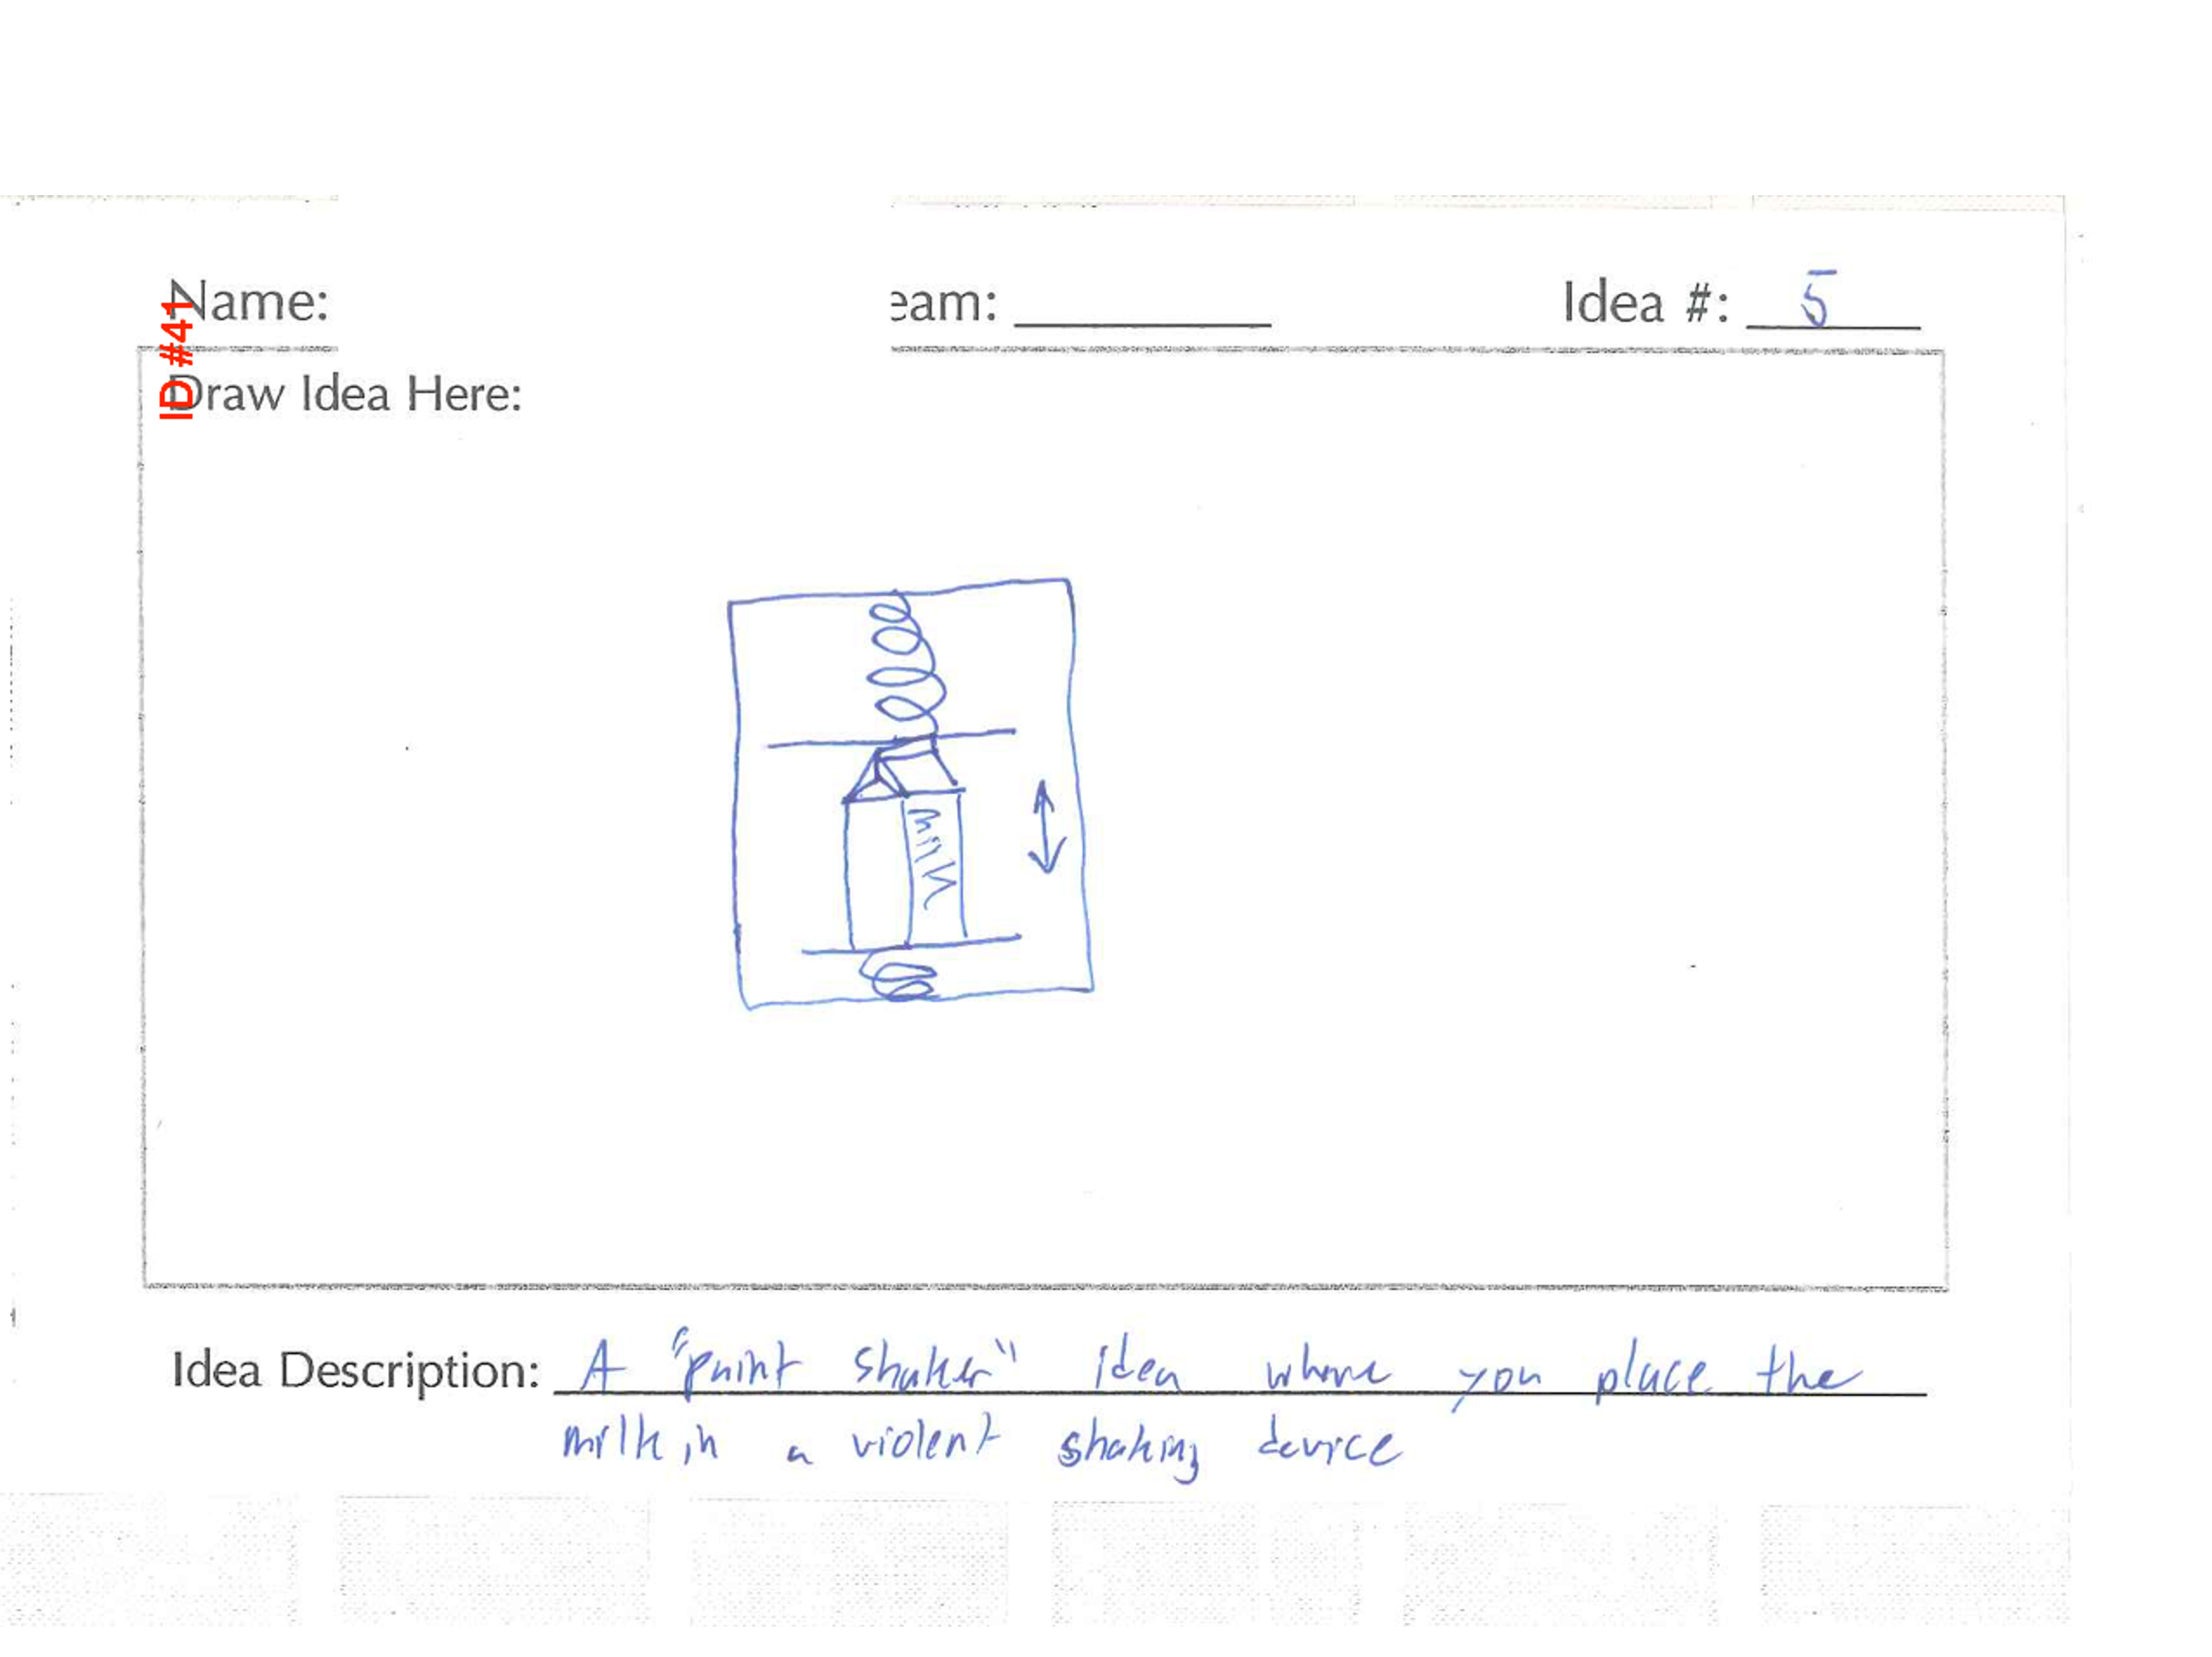 Name:
eam:
Idea #: 5
ID #41
Draw Idea Here:
milk
Idea Description: A "paint shaker" idea where you place the
milk in a violent shaking device